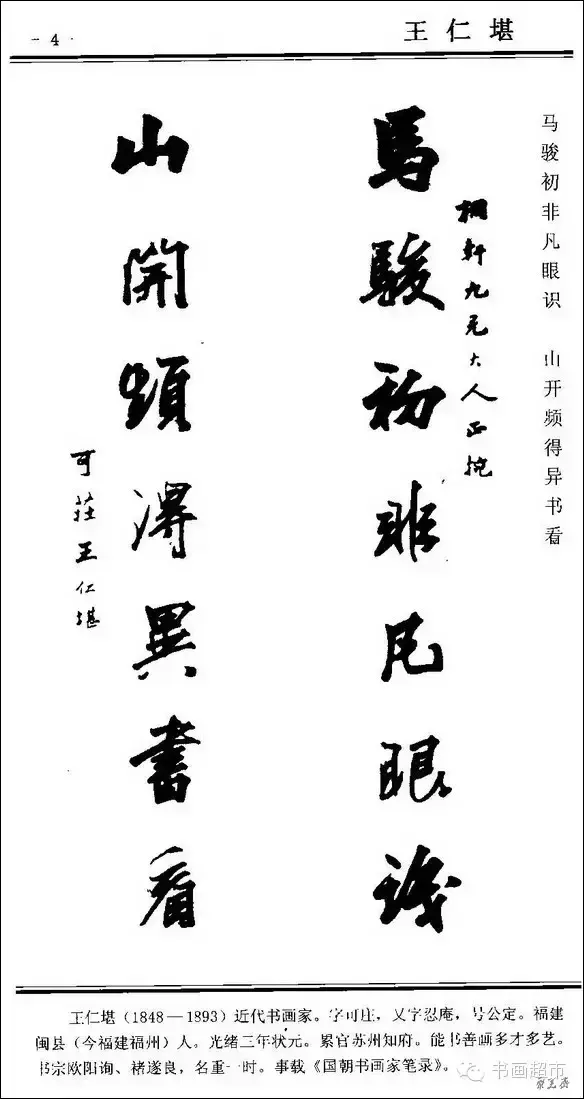 王仁堪
- 4 ·
马骏初非凡眼识 山开频得异书看
馬駿初非凡眼識
山開頻得異書看
可莊王仁堪
王仁堪(1848—1893)近代书画家。字可庄,又字忍庵,号公定。福建
闽县(今福建福州)人。光绪三年状元。累官苏州知府。能书善画多才多艺。
书宗欧阳询、褚遂良,名重一时。事载《国朝书画家笔录》。
书画超市